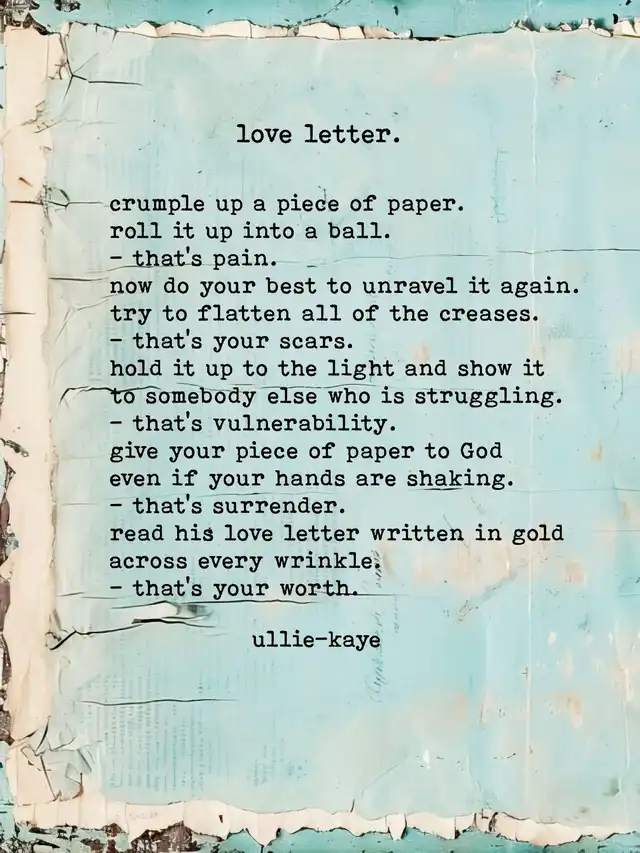 love letter.
crumple up a piece of paper.
roll it up into a ball.
- that's pain.
now do your best to unravel it again.
try to flatten all of the creases.
- that's your scars.
hold it up to the light and show it
to somebody else who is struggling.
- that's vulnerability.
give your piece of paper to God
even if your hands are shaking.
- that's surrender.
read his love letter written in gold
across every wrinkle.
- that's your worth.
ullie-kaye